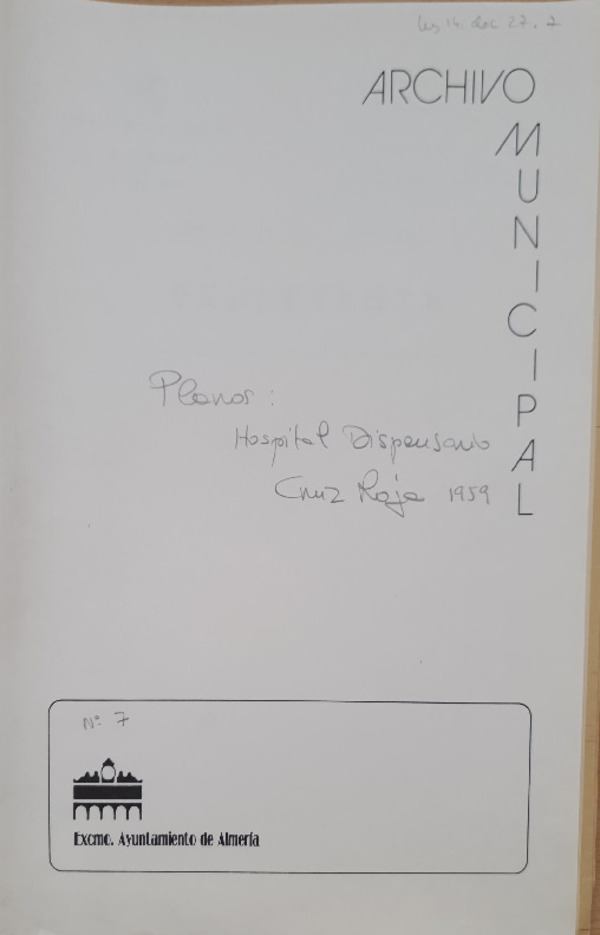 Leg 14. doc 27. 7
ARCHIVO
MUNICIPAL
Planos:
Hospital Dispensario
Cruz Roja 1959
Nº 7
Excmo. Ayuntamiento de Almería